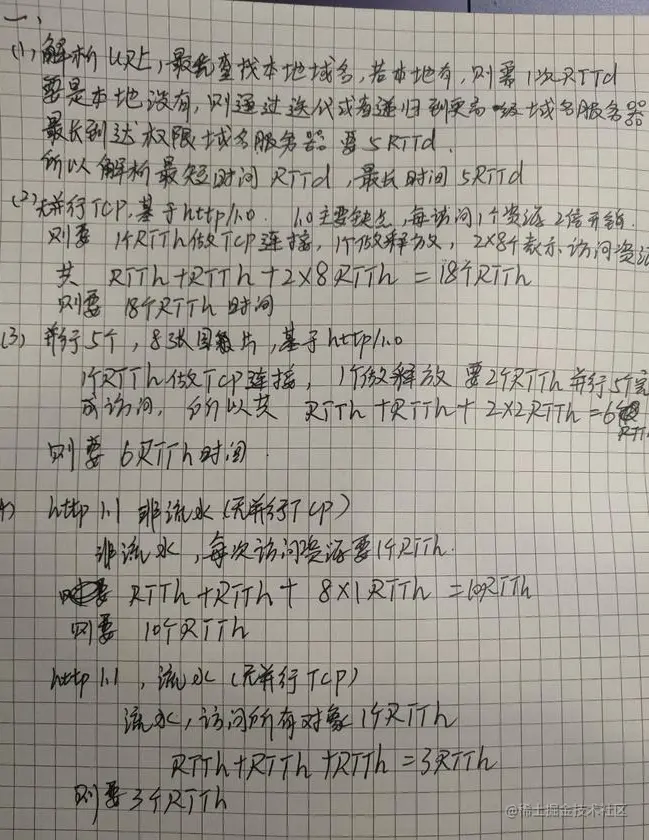 一、
(1) 解析URL, 最先查找本地域名, 若本地有, 则需1次RTTd
要是本地没有, 则通过迭代或者递归到更高一级域名服务器
最长到达权限域名服务器 要5RTTd.
所以解析最短时间RTTd, 最长时间5RTTd
(2) 无并行TCP, 基于http/1.0. 1.0主要缺点, 每访问1个资源2倍开销.
则要 1个RTTh做TCP连接, 1个做释放, 2×8个表示访问资
共 RTTh+RTTh+2×8RTTh=18个RTTh
则要 18个RTTh时间
(3) 并行5个, 8张图片, 基于http/1.0
1个RTTh做TCP连接, 1个做释放 要2个RTTh并行5个完
成访问, 所以共 RTTh+RTTh+2×2RTTh=6个
RTT
则要 6RTTh时间.
4) http 1.1 非流水(无并行TCP)
非流水, 每次访问资源要1个RTTh.
RTTh+RTTh+ 8×1RTTh =10RTTh
则要 10个RTTh
http 1.1, 流水(无并行TCP)
流水, 访问所有对象1个RTTh
RTTh+RTTh+RTTh=3RTTh
则要3个RTTh
@稀土掘金技术社区